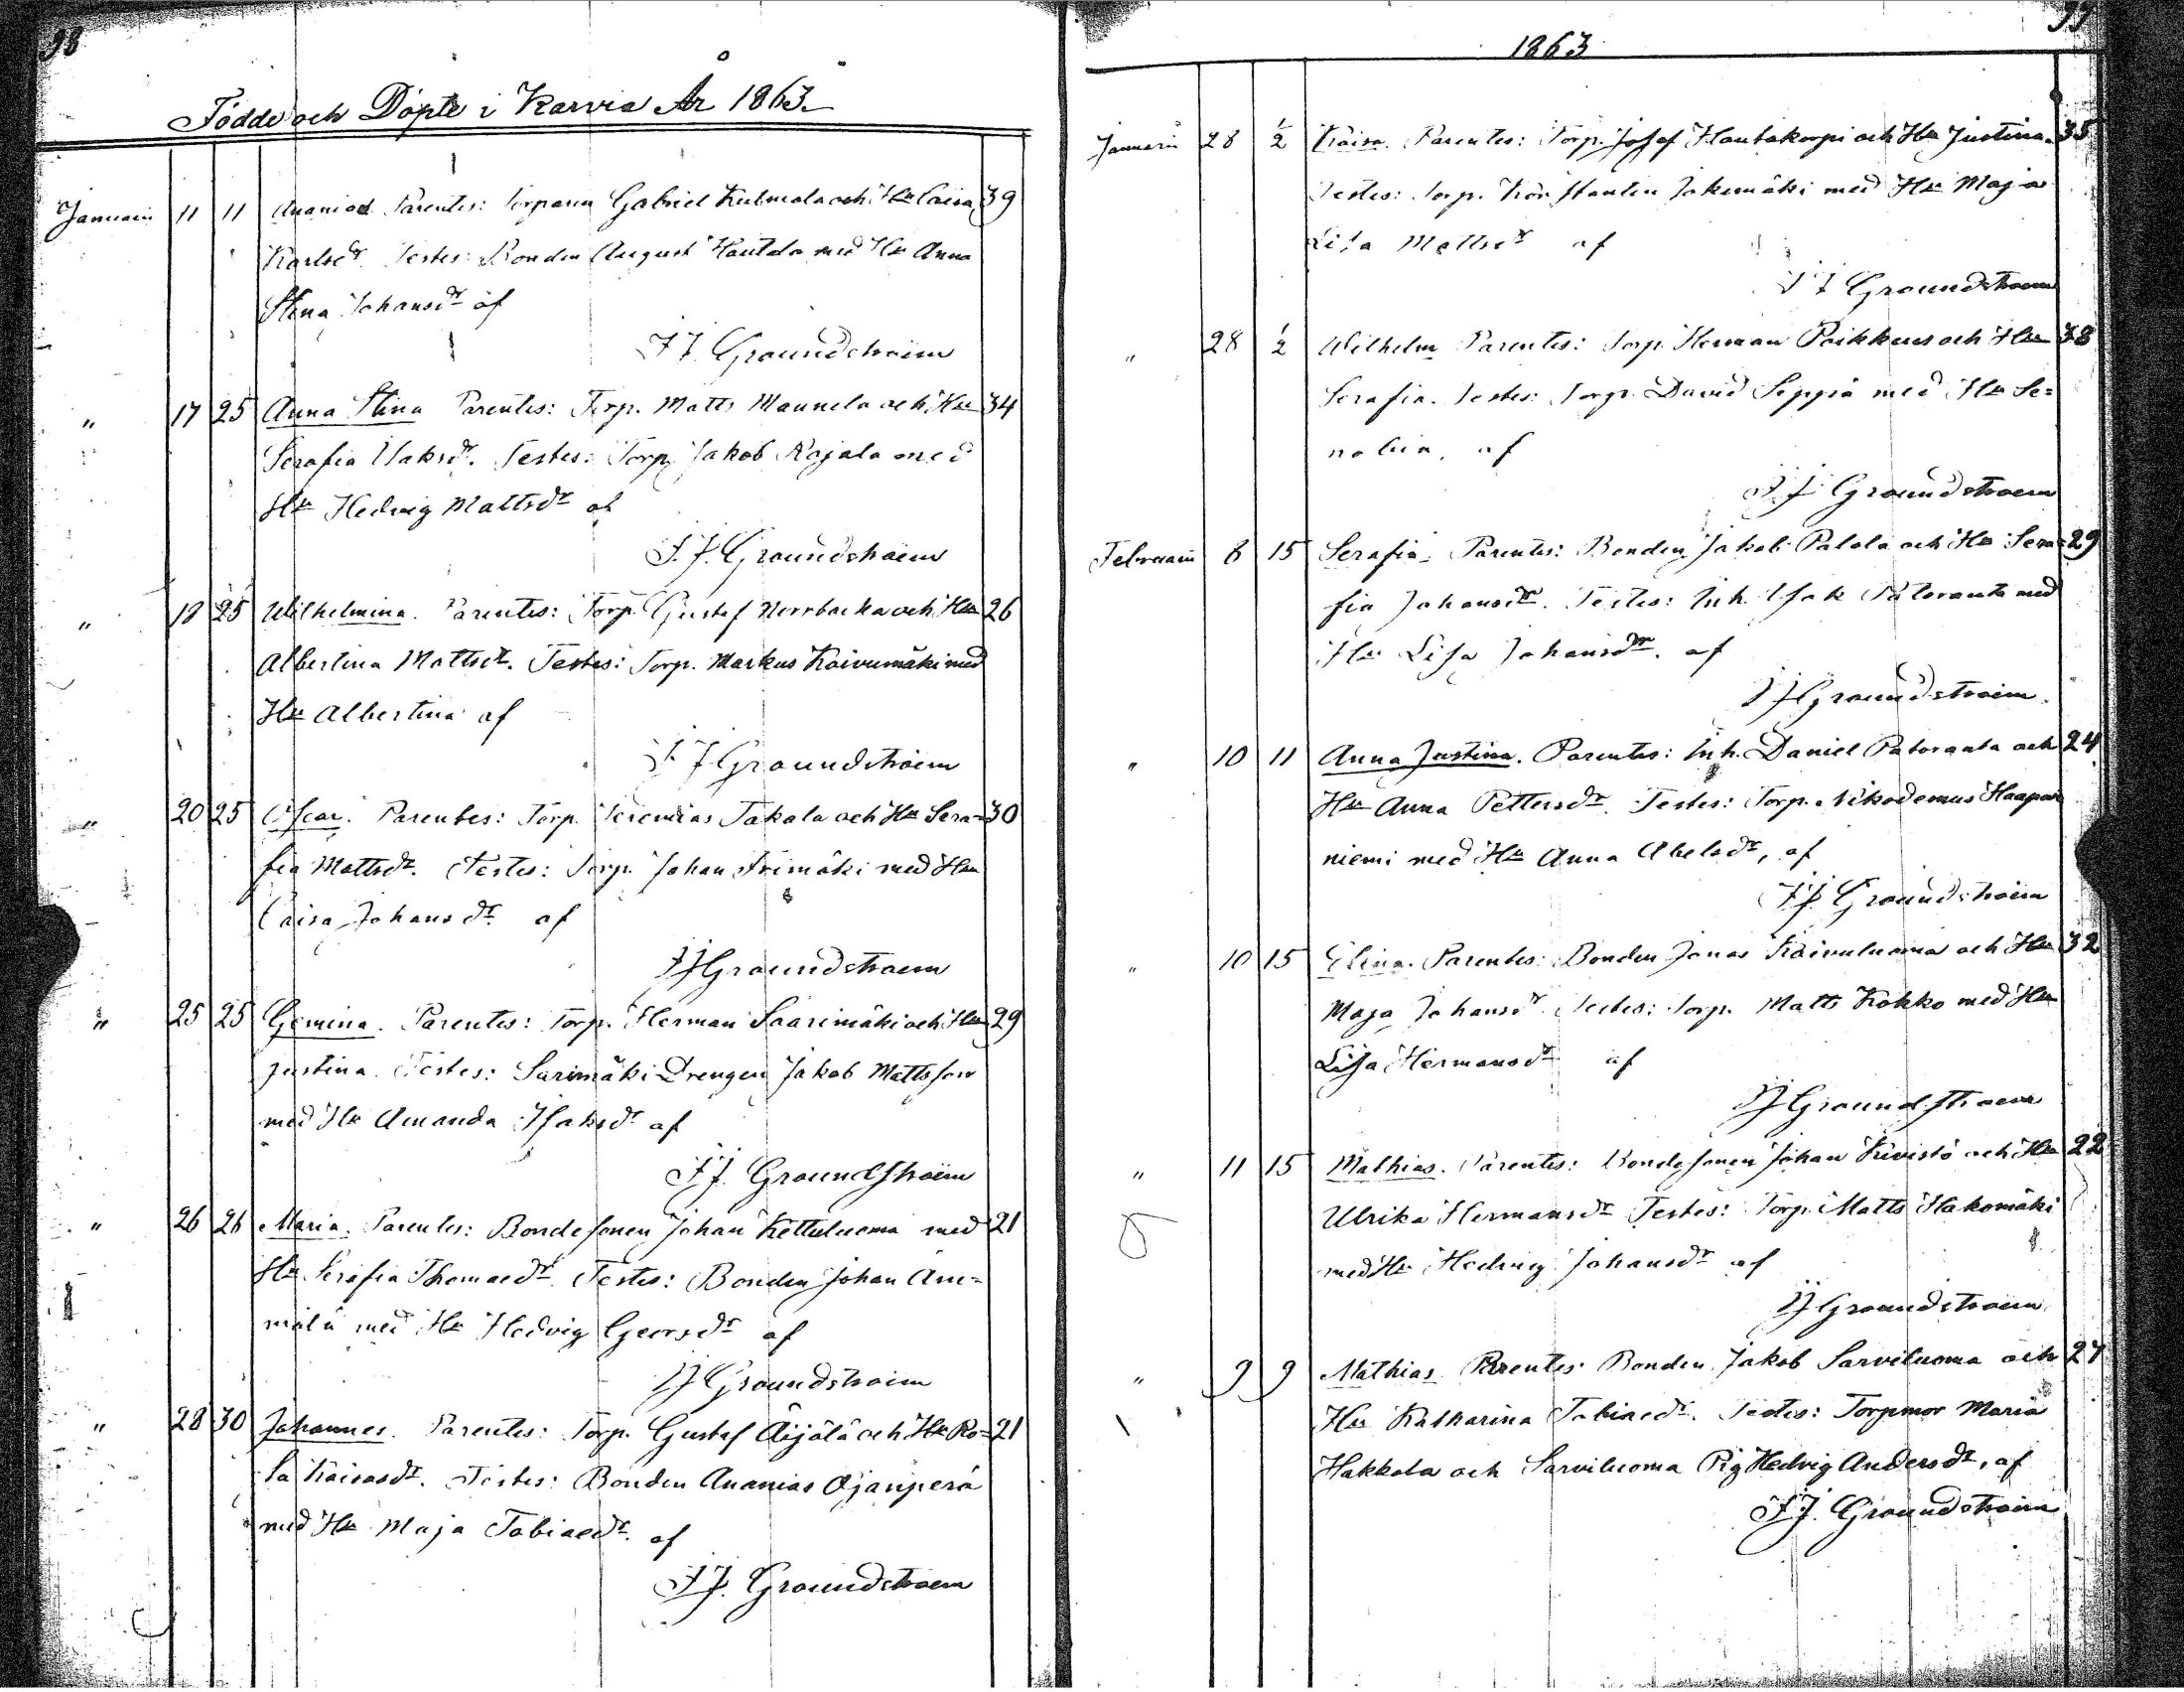 98
Födde och Döpte i Karvia År 1863
Januarii 11 11 Ananias. Parentes: Torparen Gabriel Kulmala och Hu Caisa 39
Karlsdr. Testes: Bonden August Hautala med Hu Anna
Stina Johansdr af
F. J. Groundstroem
" 17 25 Anna Stina Parentes: Torp. Matts Mannila och Hu 34
Serafia Isaksdr. Testes: Torp. Jakob Rajala med
Hu Hedvig Mattsdr af
F. J. Groundstroem
" 18 25 Wilhelmina. Parentes: Torp. Gustaf Norrbacka och Hu 26
Albertina Mattsdr. Testes: Torp. Markus Koivumäki med
Hu Albertina af
F. J. Groundstroem
" 20 25 Oscar. Parentes: Torp. Jeremias Takala och Hu Sera= 30
fia Mattsdr. Testes: Torp. Johan med Hu
Caisa Johansdr af
F J Groundstroem
" 25 25 Gemina. Parentes: Torp. Herman Saarimäki och Hu 29
Justina. Testes: Sarimäki Drengen Jakob Mattsson
med Hu Amanda Isaksdr af
F J. Groundstroem
" 26 26 Maria. Parentes: Bondesonen Johan Kettuluoma med 21
Hu Serafia Thomaedr. Testes: Bonden Johan Äm=
mälä med Hu Hedvig Georsdr af
F J Groundstroem
" 28 30 Johannes. Parentes: Torp. Gustaf Äijälä och Hu Ro= 21
sa Testes: Bonden Ananias Ojanperä
med Hu Maja Tobiaedr. af
F J. Groundstroem
99
1863
Januarii 28 1/2 Kaisa. Parentes: Torp. Josef Hautakorpi och Hu Justina. 35
Testes: Torp. Konstantin Jokimäki med Hu Maja
Lisa Mattsdr af
F J Groundstroem
" 28 1/2 Wilhelm Parentes: Torp. Herman Poikkeus och Hu 38
Serafia. Testes: Torp. David Seppä med Hu Se=
nobia, af
F J Groundstroem
Februarii 8 15 Serafia. Parentes: Bonden Jakob Palola och Hu Sera= 29
fia Johansdr. Testes: Inh. Isak Patoranta med
Hu Lisa Johansdr. af
F J Groundstroem.
" 10 11 Anna Justina. Parentes: Inh. Daniel Patoranta och 24
Hu Anna Pettersdr. Testes: Torp. Nikodemus Haapa
niemi med Hu Anna Abelsdr, af
F J. Groundstroem
" 10 15 Elina. Parentes: Bonden Jonas Koivuluoma och Hu 32
Maja Johansdr Testes: Torp. Matts Kokko med Hu
Lisa Hermansdr af
F J Groundstroem
" 11 15 Mathias. Parentes: Bondesonen Johan Kivistö och Hu 22
Ulrika Hermansdr Testes: Torp. Matts Hakomäki
med Hu Hedvig Johansdr af
F J Groundstroem
" 9 9 Mathias. Parentes: Bonden Jakob Sarviluoma och 27
Hu Katharina Tobiaedr. Testes: Torpmor Maria
Hakkola och Sarviluoma Pig Hedvig Andersdr, af
F J. Groundstroem